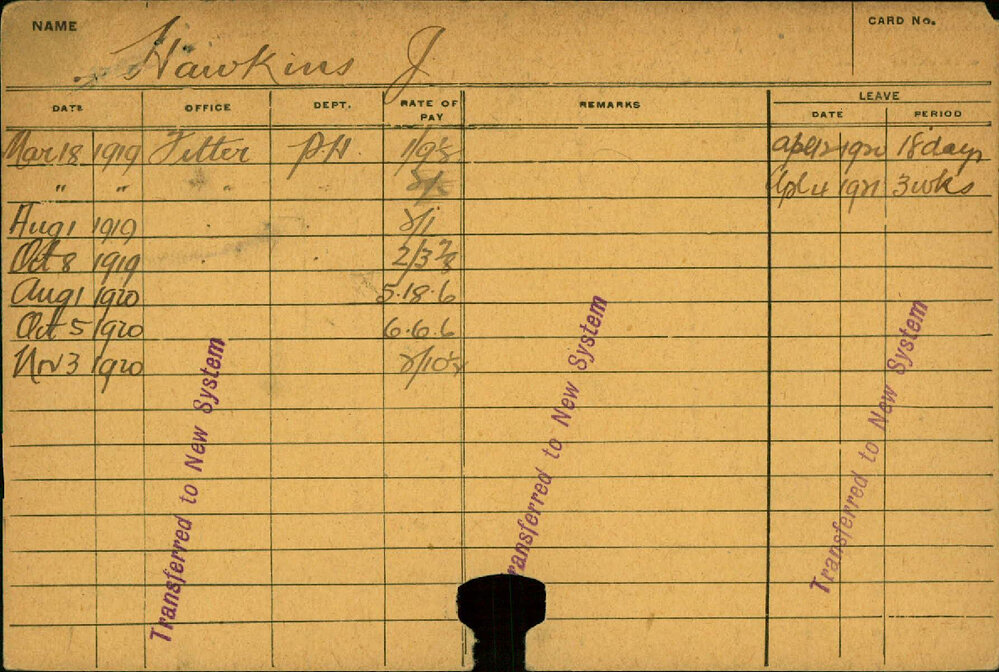 NAME
Hawkins J
CARD No.
DATE OFFICE DEPT. RATE OF PAY REMARKS LEAVE
DATE PERIOD
Mar 18 1919 Fitter P.H. 1/9 Apl 12 1920 18 days
" " " Apl 4 1921 3 wks
Aug 1 1919 2/1
Oct 8 1919 2/3 7/8
Aug 1 1920 5.18.6
Oct 5 1920 6.6.6
Nov 3 1920 2/10
Transferred to New System
Transferred to New System
Transferred to New System